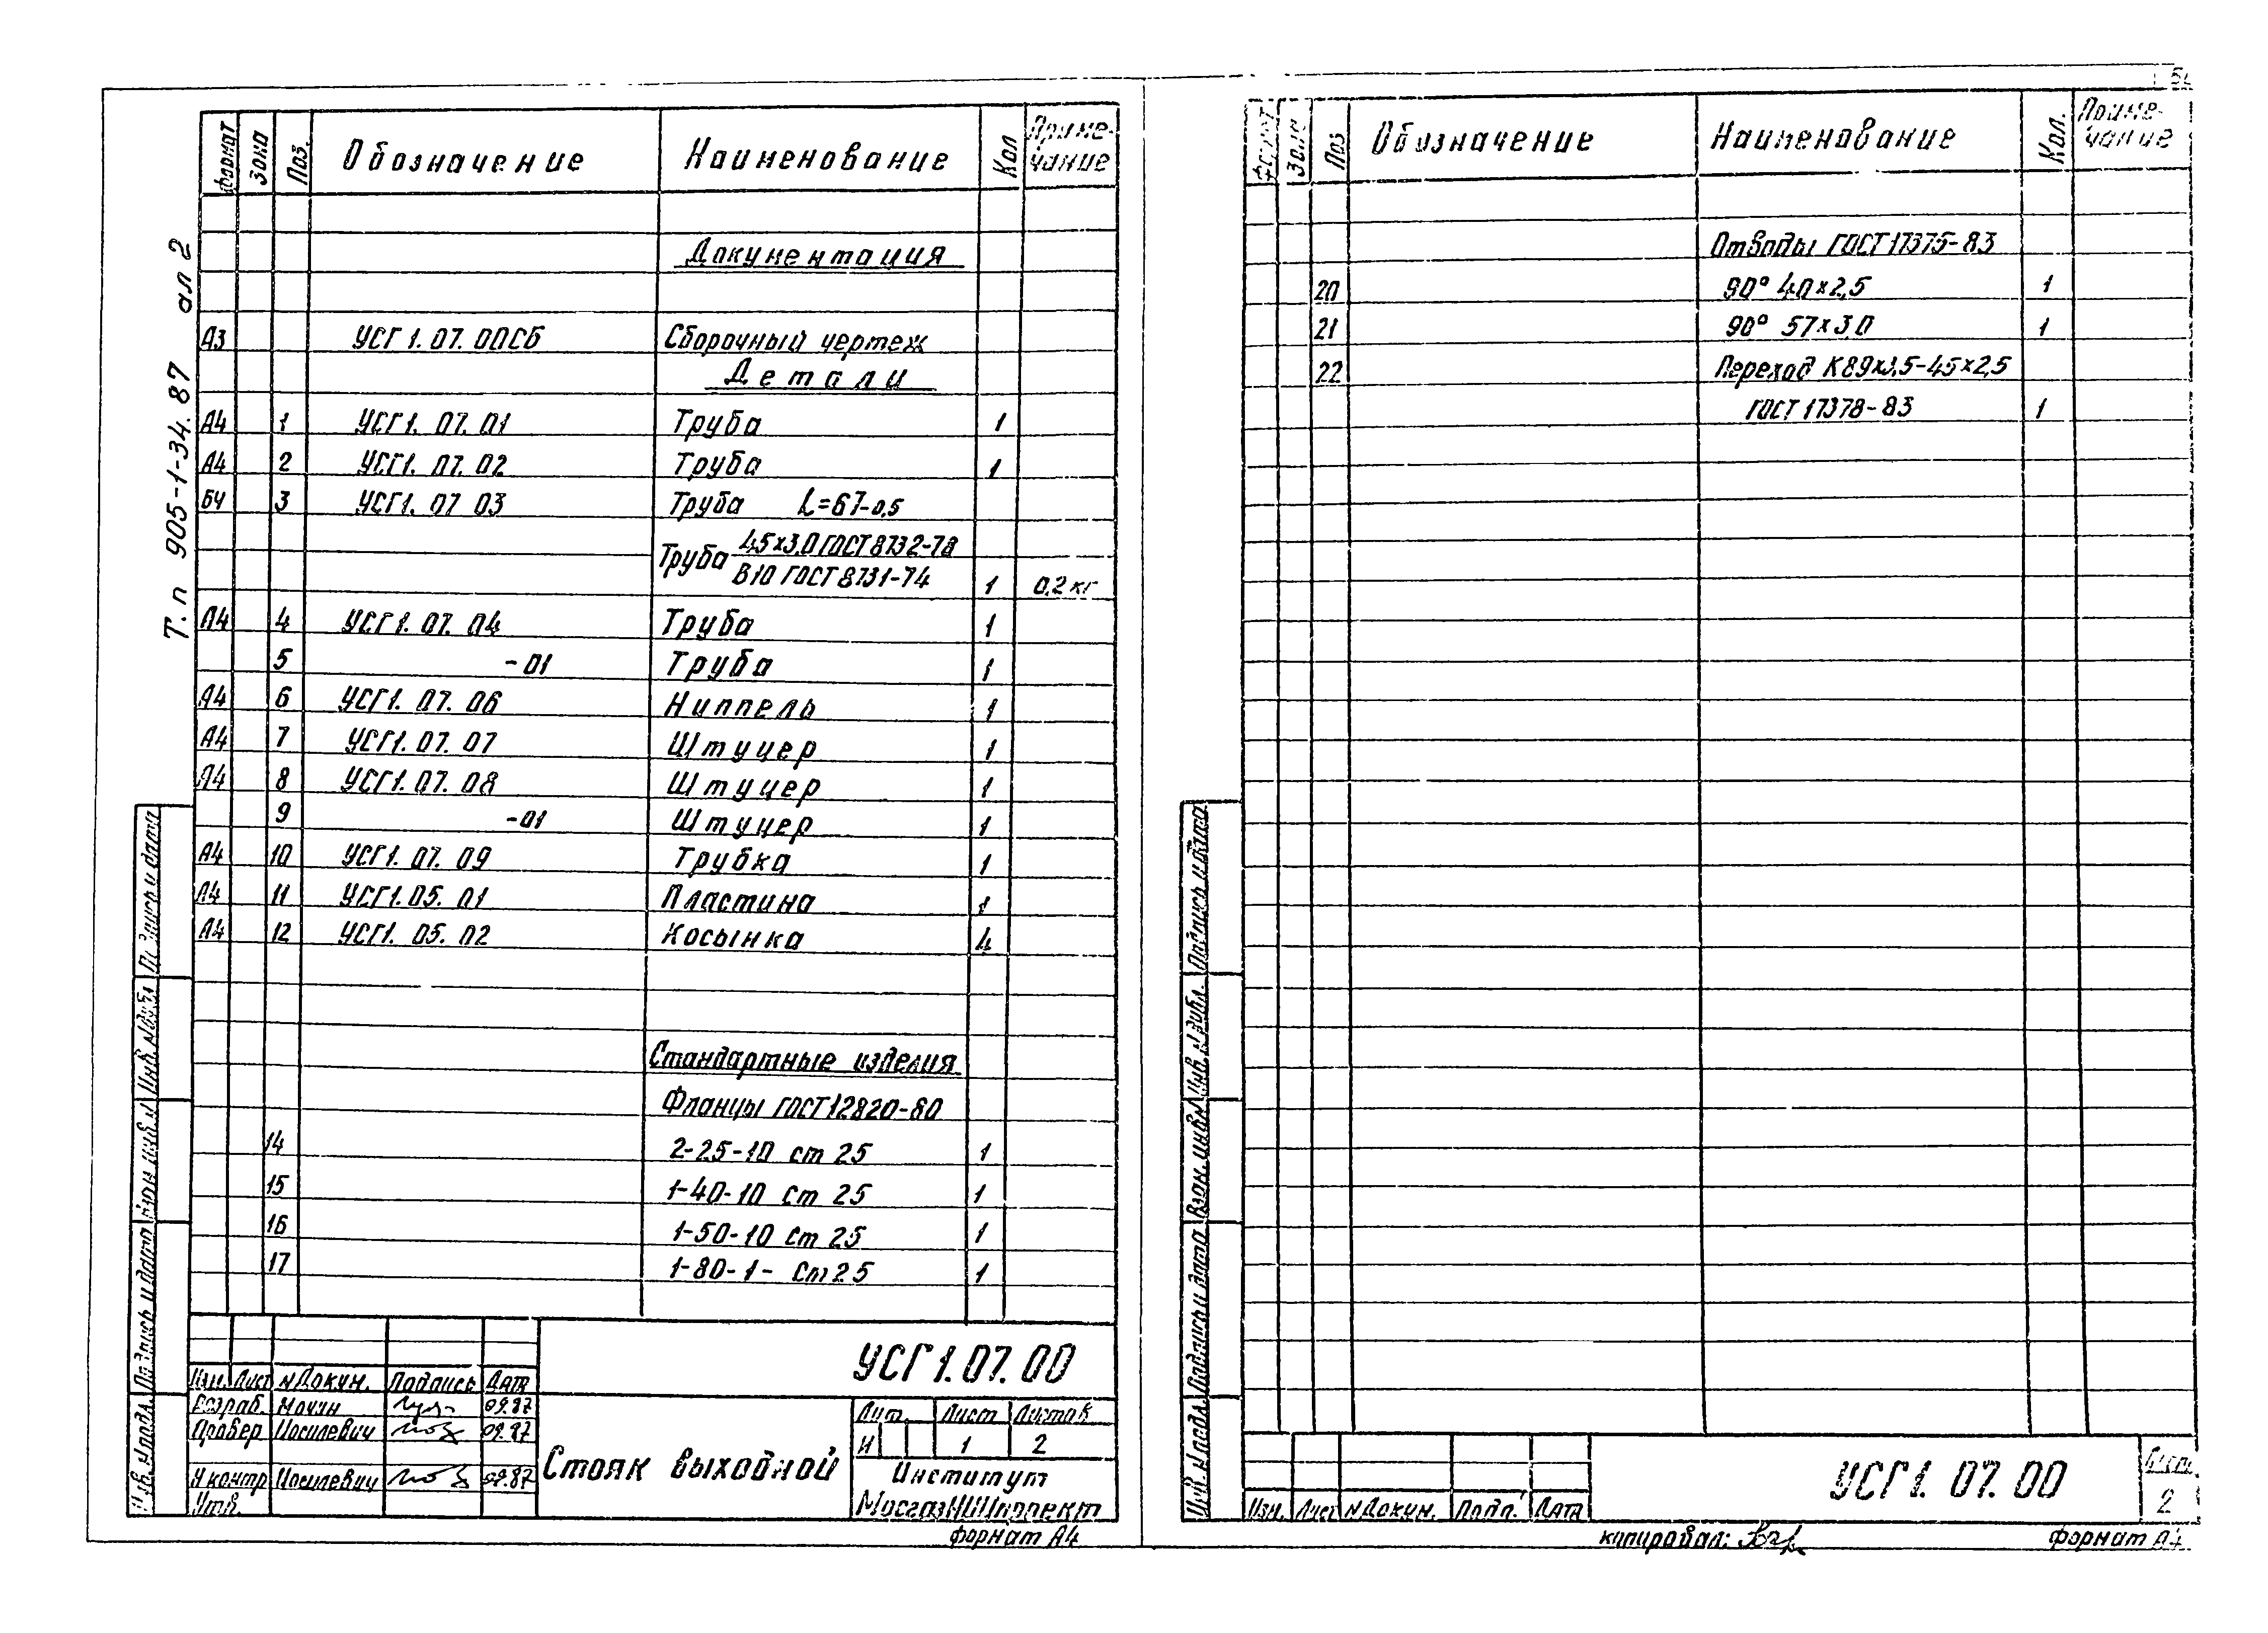 Т.п 905-1-34.87 ал 2
Формат Зона Поз. Обозначение Наименование Кол Примечание
Документация
А3 УСГ 1.07.00СБ Сборочный чертеж
Детали
А4 1 УСГ1.07.01 Труба 1
А4 2 УСГ1.07.02 Труба 1
БЧ 3 УСГ1.07 03 Труба L=67-0,5
Труба 45×3,0 ГОСТ 8732-78
В10 ГОСТ 8731-74 1 0,2 кг
А4 4 УСГ1.07.04 Труба 1
5 -01 Труба 1
А4 6 УСГ1.07.06 Ниппель 1
А4 7 УСГ1.07.07 Штуцер 1
А4 8 УСГ1.07.08 Штуцер 1
9 -01 Штуцер 1
А4 10 УСГ1.07.09 Трубка 1
А4 11 УСГ1.05.01 Пластина 1
А4 12 УСГ1.05.02 Косынка 4
Стандартные изделия
Фланцы ГОСТ 12820-80
14 2-25-10 ст 25 1
15 1-40-10 Ст 25 1
16 1-50-10 Ст 25 1
17 1-80-1- Ст 25 1
Инв. № подл. Подпись и дата Взам инв. № Инв. № дубл. Подпись и дата
УСГ1.07.00
Изм. Лист № Докум. Подпись Дата
Разраб. Мочин 09.87
Провер Иосилевич 09.87
Н контр Иосилевич 09.87
Утв.
Стояк выходной
Лит. Лист Листов
И 1 2
Институт
МосгазНИИпроект
формат А4
Формат Зона Поз Обозначение Наименование Кол. Примечание
Отводы ГОСТ 17375-83
20 90° 40×2,5 1
21 90° 57×3,0 1
22 Переход К 89×3,5-45×2,5
ГОСТ 17378-83 1
Инв. № подл. Подпись и дата Взам. инв. № Инв. № дубл. Подпись и дата
Изм. Лист № Докум. Подп. Дата
УСГ1.07.00
Лист
2
копировал:
формат А4